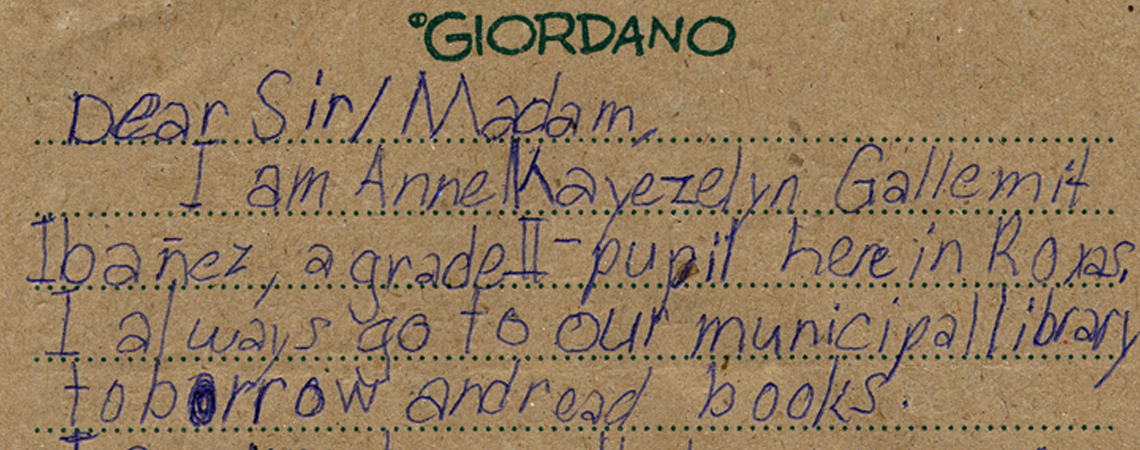 GIORDANO
Dear Sir/Madam,
I am Anne Kayezelyn Gallemit
Ibañez, a grade II-pupil here in Roxas.
I always go to our municipal library
to borrow and read books.